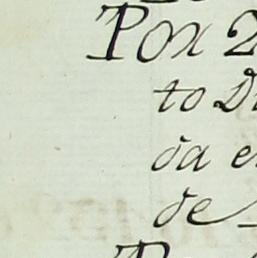 Por 2
to D
da e
de